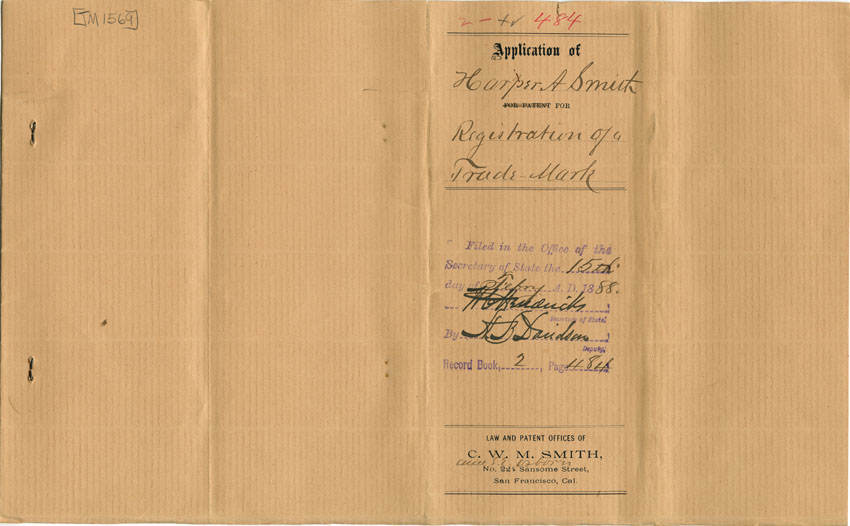 [TM1569]
2 - 484
Application of
Harper A Smith
FOR PATENT FOR
Registration of a
Trade-Mark
Filed in the Office of the
Secretary of State the 15th
day of Febry A. D. 1888.
W C Hendricks
Secretary of State.
By A B Davidson
Deputy.
Record Book, 2, Page 484
LAW AND PATENT OFFICES OF
C. W. M. SMITH,
No. 224 Sansome Street,
San Francisco, Cal.